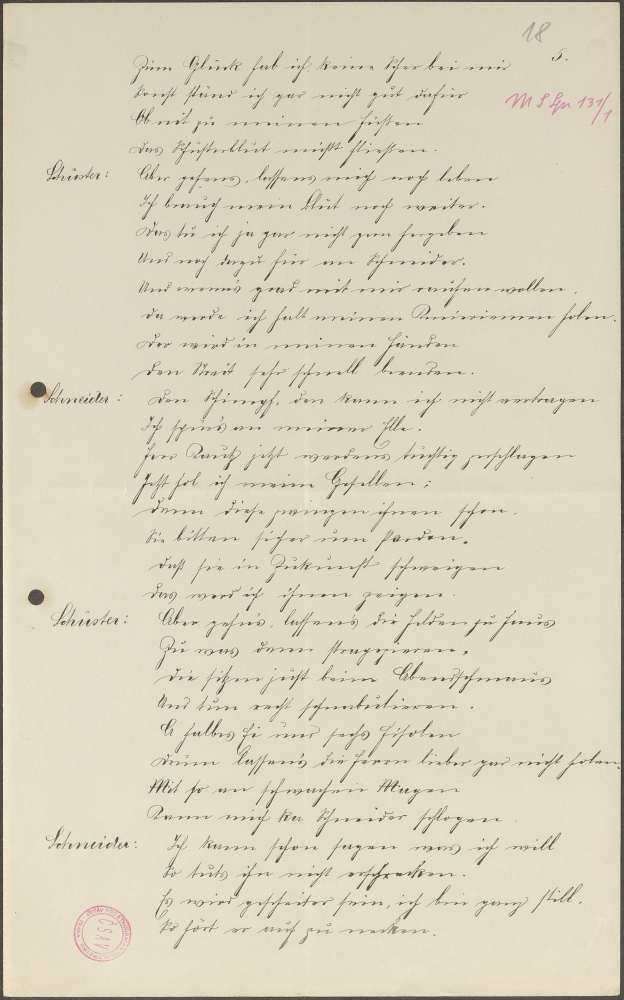 18
5.
M S Gn 131/1
Zum Glück hab ich keine Scher bei mir
Sonst stünd ich gar nicht gut dafür
Ob nit zu meinen Füssen
Das Schusterblut müsst fliessen.
Schuster: Aber gehens, lassens mich noch leben
Ich brauch mein Blut noch weiter.
Das tu ich ja gar nicht gern hergeben
Und noch dazu für an Schneider.
Und wenns grad mit mir raufen wollen
Da werde ich halt meinen Knieriemen holen.
Der wird in meinen Händen
Den Streit sehr schnell beenden.
Schneider: Den Schimpf, den kann ich nicht vertragen
Ich spürs an meiner Elle.
Ihr jetzt werdens tüchtig zerschlagen
Jetzt hol ich meine Gesellen;
Denn diese zwingen ihnen schon.
Sie bitten sicher um Pardon.
Daß sie in Zukunft schweigen
Das werd ich ihnen zeigen.
Schuster: Aber gehns, lassens die Helden zu Haus
Zu was denn strapezieren.
Die sitzen just beim Abendschmaus
Und tun recht schnabulieren.
A halbes Ei und sechs Fisolen
Drum lassens die Herrn lieber gar nicht holen.
Mit so an schwachen Magen
Kann mich ka Schneider schlogen.
Schneider: Ich kann schon sagen was ich will
So tuts ihn nicht erschrecken.
Es wird gescheiter sein, ich bin ganz still.
So hört er auf zu necken.
ČSAV